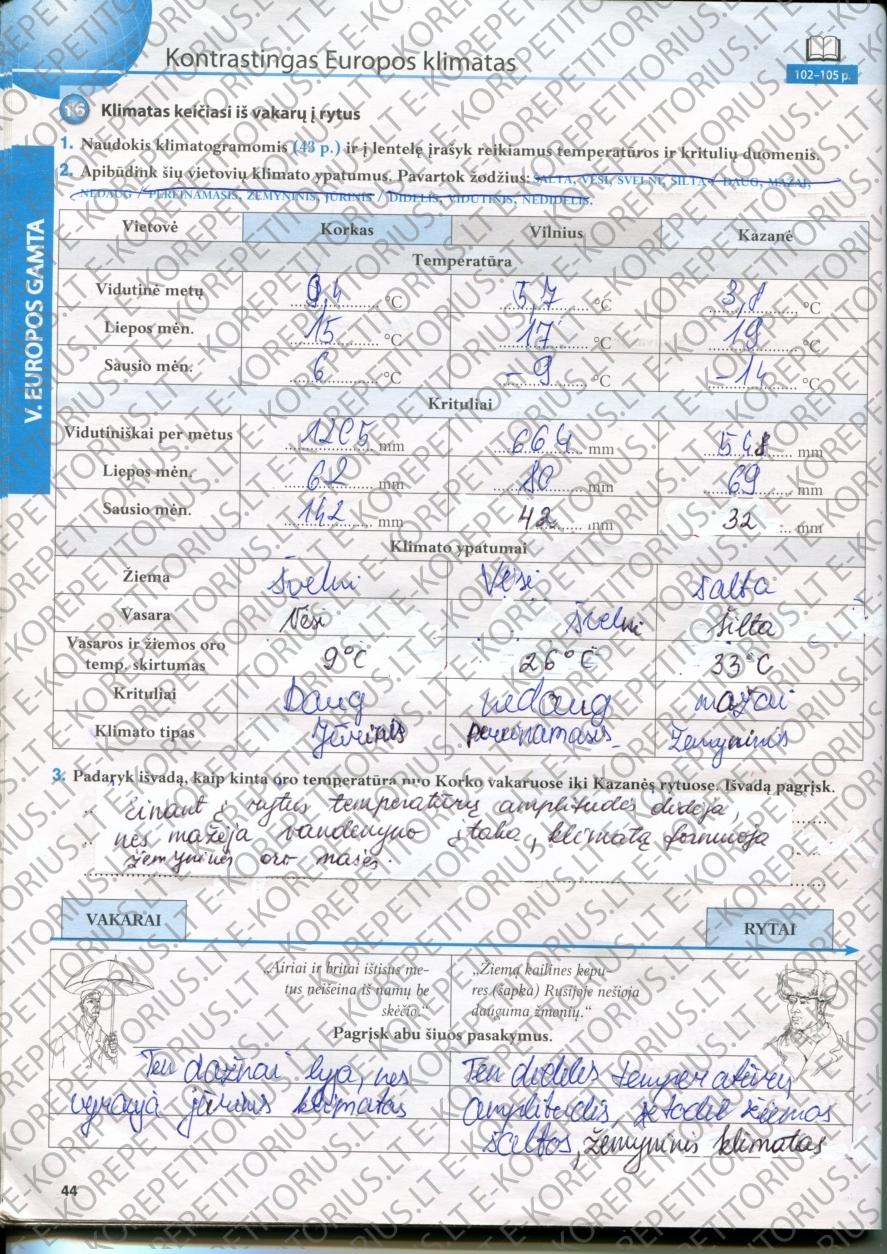 Kontrastingas Europos klimatas
102–105 p.
16 Klimatas keičiasi iš vakarų į rytus
1. Naudokis klimatogramomis (43 p.) ir į lentelę įrašyk reikiamus temperatūros ir kritulių duomenis.
2. Apibūdink šių vietovių klimato ypatumus. Pavartok žodžius: ŠALTA, VĖSI, ŠVELNI, ŠILTA / DAUG, MAŽAI,
NEDAUG / PEREINAMASIS, ŽEMYNINIS, JŪRINIS / DIDELIS, VIDUTINIS, NEDIDELIS.
V. EUROPOS GAMTA
Vietovė Korkas Vilnius Kazanė
Temperatūra
Vidutinė metų 9,4 °C 5,7 °C 3,8 °C
Liepos mėn. 15 °C 17 °C 19 °C
Sausio mėn. 6 °C -9 °C -14 °C
Krituliai
Vidutiniškai per metus 1205 mm 664 mm 548 mm
Liepos mėn. 62 mm 80 mm 69 mm
Sausio mėn. 142 mm 42 mm 32 mm
Klimato ypatumai
Žiema švelni Vėsi šalta
Vasara Vėsi švelni šilta
Vasaros ir žiemos oro
temp. skirtumas 9°C 26°C 33°C
Krituliai Daug nedaug mažai
Klimato tipas Jūrinis pereinamasis Žemyninis
3. Padaryk išvadą, kaip kinta oro temperatūra nuo Korko vakaruose iki Kazanės rytuose. Išvadą pagrįsk.
einant į rytus temperatūrų amplitudės didėja,
nes mažėja vandenyno įtaka, klimatą formuoja
žemyninės oro masės.
VAKARAI
RYTAI
„Airiai ir britai ištisus me-
tus neišeina iš namų be
skėčio.“
„Žiemą kailines kepu-
res (šapką) Rusijoje nešioja
dauguma žmonių.“
Pagrįsk abu šiuos pasakymus.
Ten dažnai lyja, nes
vyrauja jūrinis klimatas
Ten didelės temperatūrų
amplitudės, žiemos
šaltos, žemyninis klimatas
44
E-KOREPETITORIUS.LT